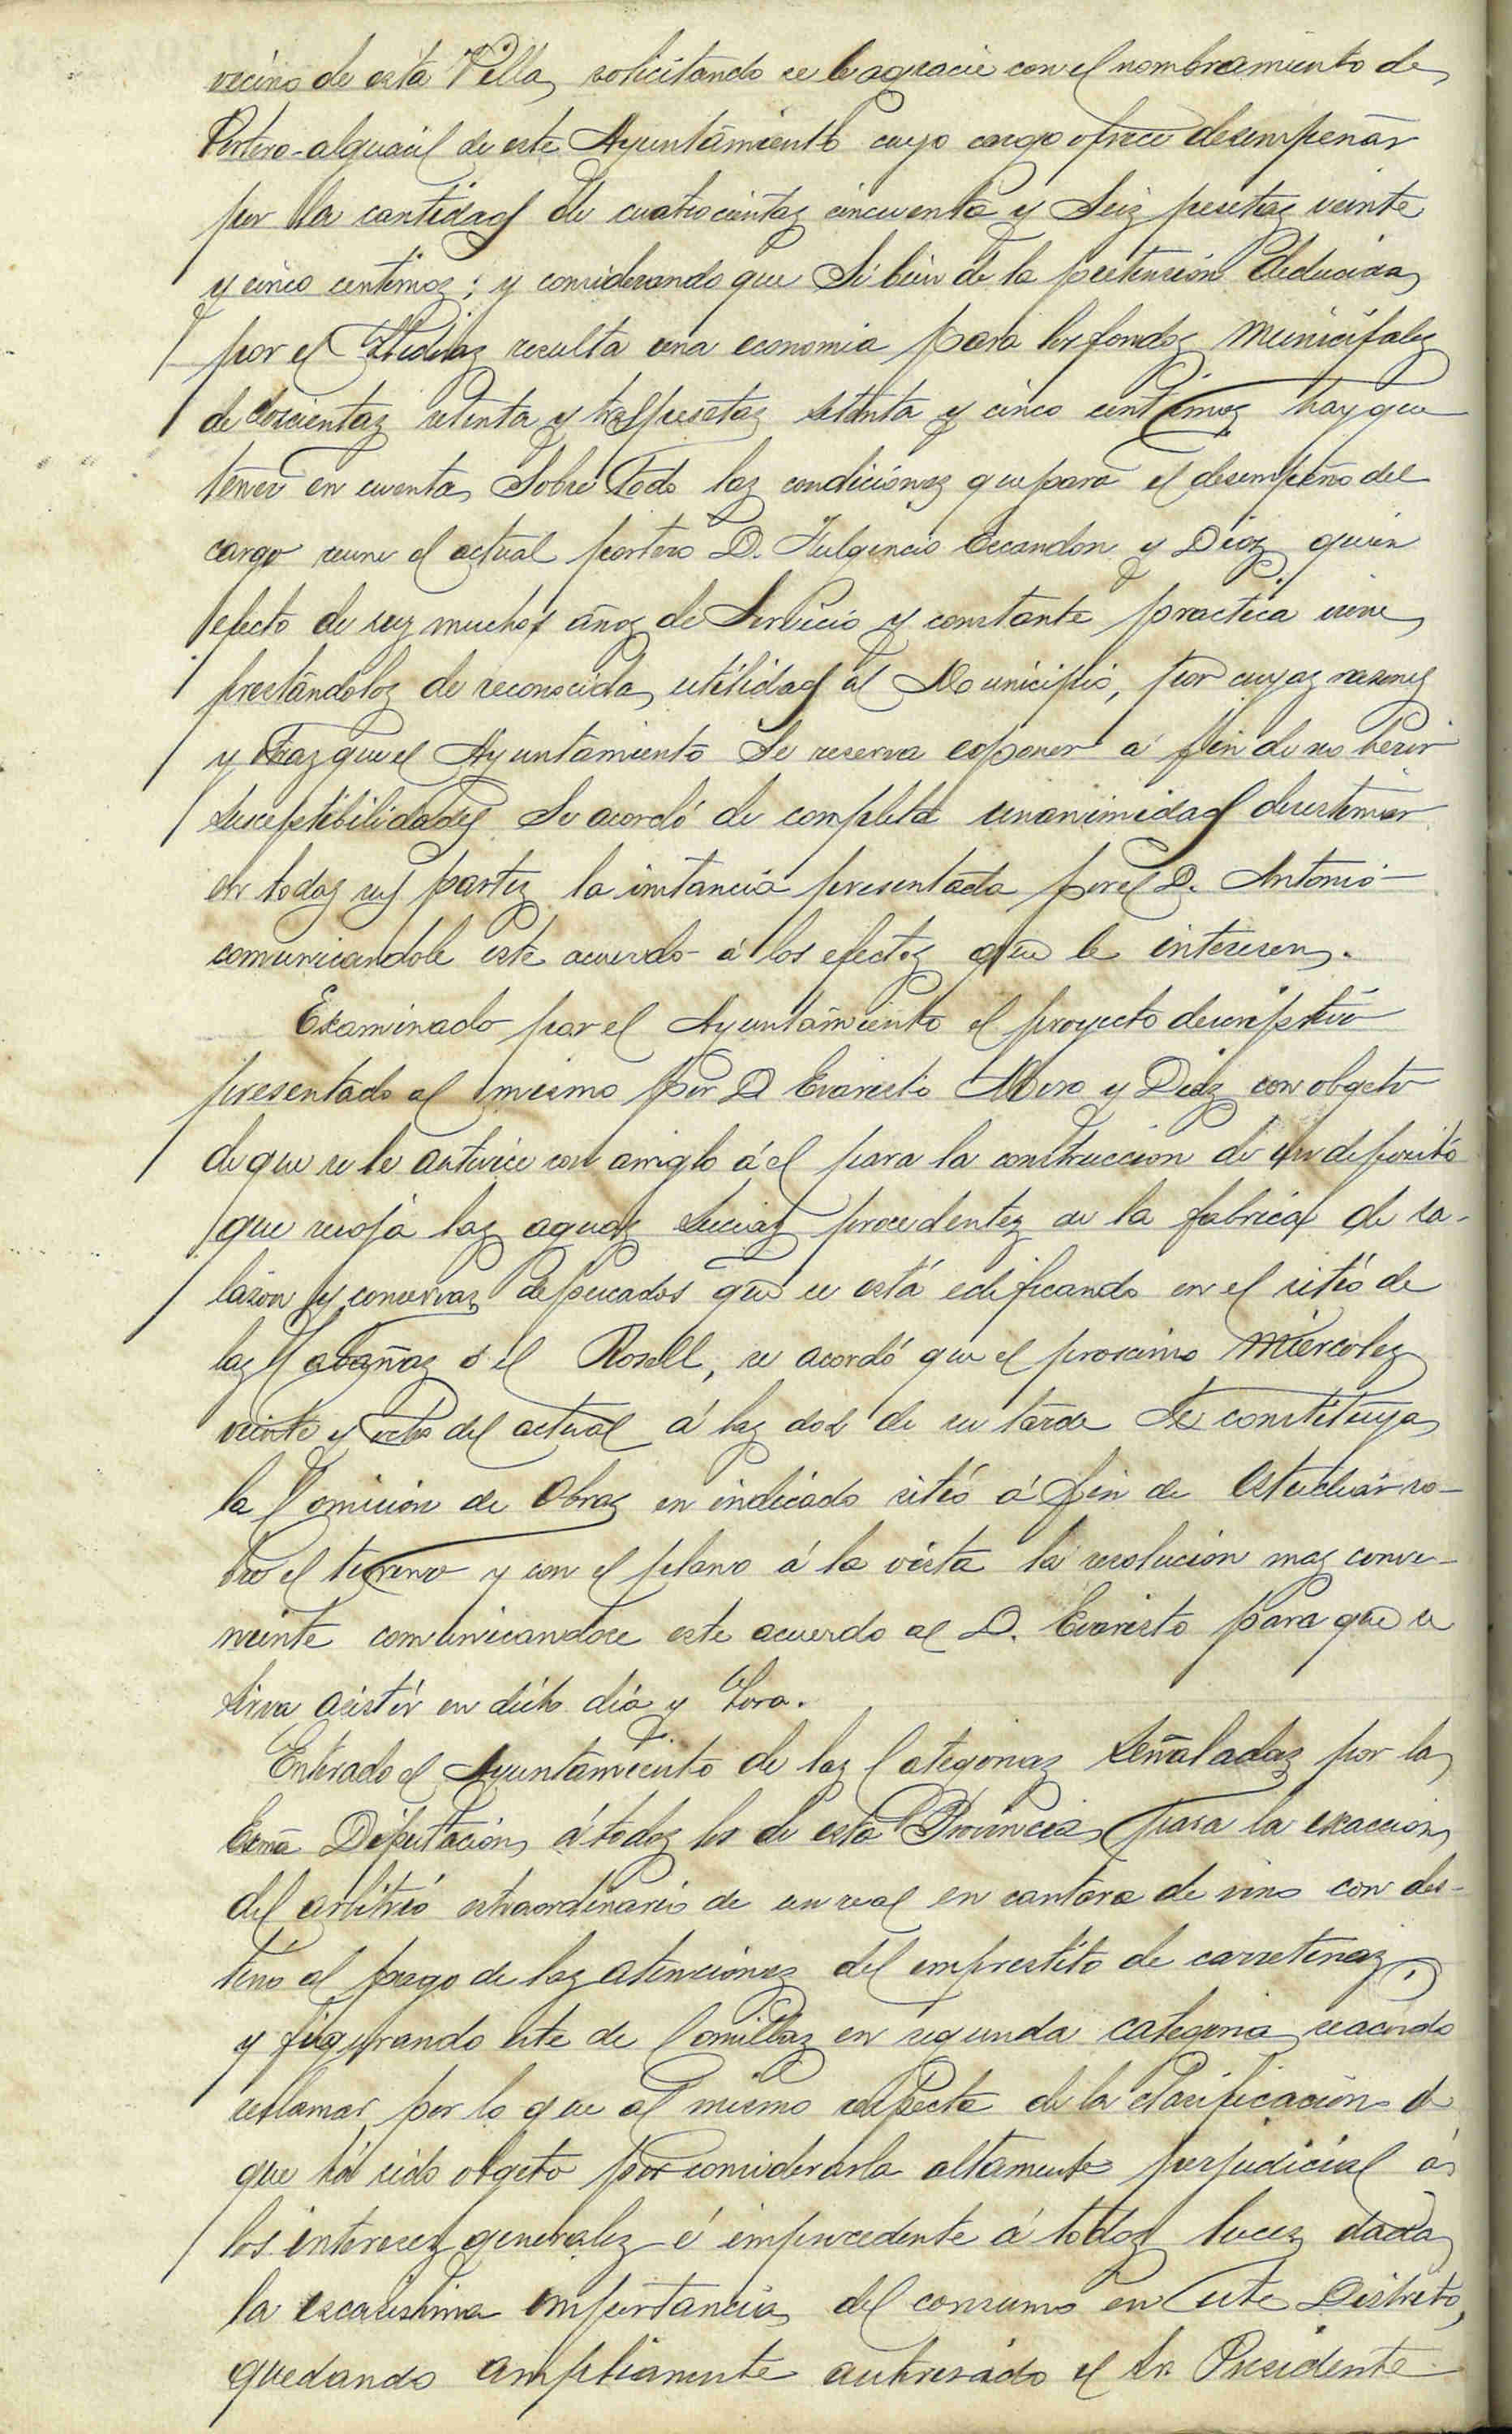 vecino de esta Villa, solicitando se le agracie con el nombramiento de
Portero-alguacil de este Ayuntamiento cuyo cargo ofrece desempeñar
por la cantidad de cuatrocientas cincuenta y seis pesetas veinte
y cinco centimos; y considerando que si bien de la pretensión deducida
por el resulta una economia para los fondos municipales
de doscientas setenta y tres pesetas setenta y cinco centimos hay que
tener en cuenta sobre todo las condiciones que para el desempeño del
cargo reune el actual portero D. Fulgencio Escandon y Diaz quien
efecto de sus muchos años de servicio y constante practica viene
prestándolos de reconocida utilidad al Municipio, por cuyas razones
y otras que el Ayuntamiento se reserva esponer a fin de no herir
susceptibilidades se acordó de completa unanimidad desestimar
en todas sus partes la instancia presentada por el D. Antonio
comunicandole este acuerdo á los efectos que le interesen.
Examinado por el Ayuntamiento el proyecto descriptivo
presentado al mismo por D. Evaristo Moro y Diaz con objeto
de que se le autorice con arreglo á el para la construccion de un deposito
que recoja las aguas sucias procedentes de la fabrica de sa-
lazon y conservas de pescados que se está edificando en el sitio de
las Cabañas ó el Rosell, se acordó que el proximo Miercoles
veinte y ocho del actual á las dos de su tarde se constituya
la Comision de Obras en indicado sitio á fin de estudiar so-
bre el terreno y con el plano á la vista la resolucion mas conve-
niente comunicandose este acuerdo al D. Evaristo para que se
sirva asistir en dicho dia y hora.
Enterado el Ayuntamiento de las Categorias señaladas por la
Exma Diputacion á todos los de esta Provincia para la exaccion
del arbitrio extraordinario de un real en cantara de vino con des-
tino al pago de las atenciones del emprestito de carreteras,
y figurando este de Comillas en segunda categoria se acordó
reclamar por lo que al mismo respecta de la clasificacion de
que há sido objeto por considerarla altamente perjudicial á
los intereses generales é improcedente á todas luces dada
la escasisima importancia del consumo en este Distrito,
quedando ampliamente autorizado el Sr. Presidente